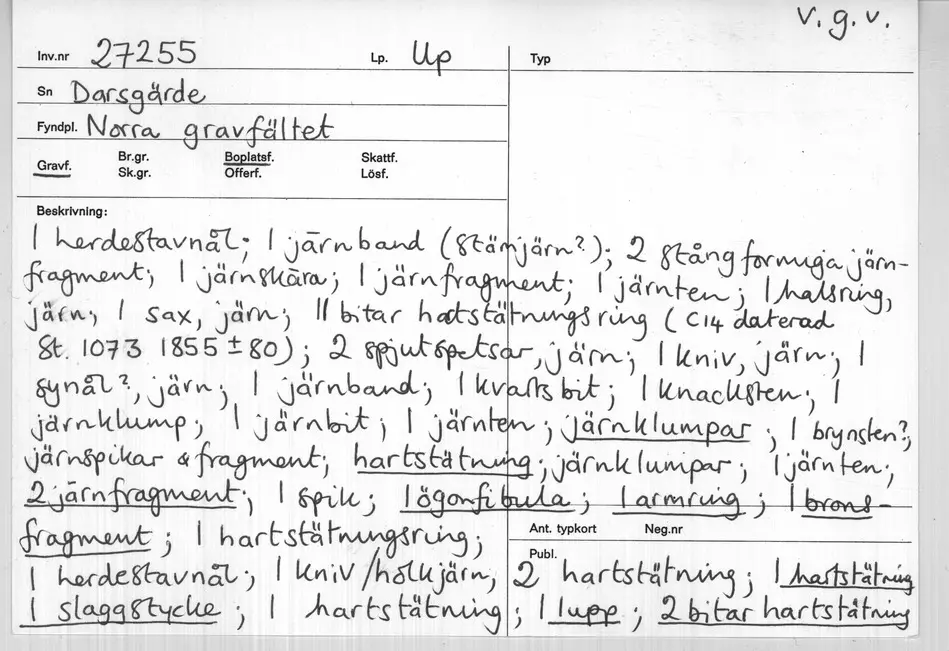 V. g. v.
Inv.nr 27255 Lp. Up Typ
Sn Darsgärde
Fyndpl. Norra gravfältet
Gravf. Br.gr. Boplatsf. Skattf.
Sk.gr. Offerf. Lösf.
Beskrivning:
1 herdestavnål; 1 järnband (stämjärn?); 2 stångformiga järn-
fragment; 1 järnskära; 1 järnfragment; 1 järnten; 1 halsring,
järn; 1 sax, järn; 11 bitar hartstätningsring (C14 daterad
St. 1073 1855 ± 80); 2 spjutspetsar, järn; 1 kniv, järn; 1
synål?, järn; 1 järnband; 1 kvartsbit; 1 knacksten; 1
järnklump; 1 järnbit; 1 järnten; järnklumpar; 1 brynsten?;
järnspikar & fragment; hartstätning; järnklumpar; 1 järnten;
2 järnfragment; 1 spik; 1 ögonfibula; 1 armring; 1 brons-
Ant. typkort Neg.nr
fragment; 1 hartstätningsring;
Publ.
1 herdestavnål; 1 kniv/holkjärn, 2 hartstätning; 1 hartstätning
1 slaggstycke; 1 hartstätning; 1 lupp; 2 bitar hartstätning